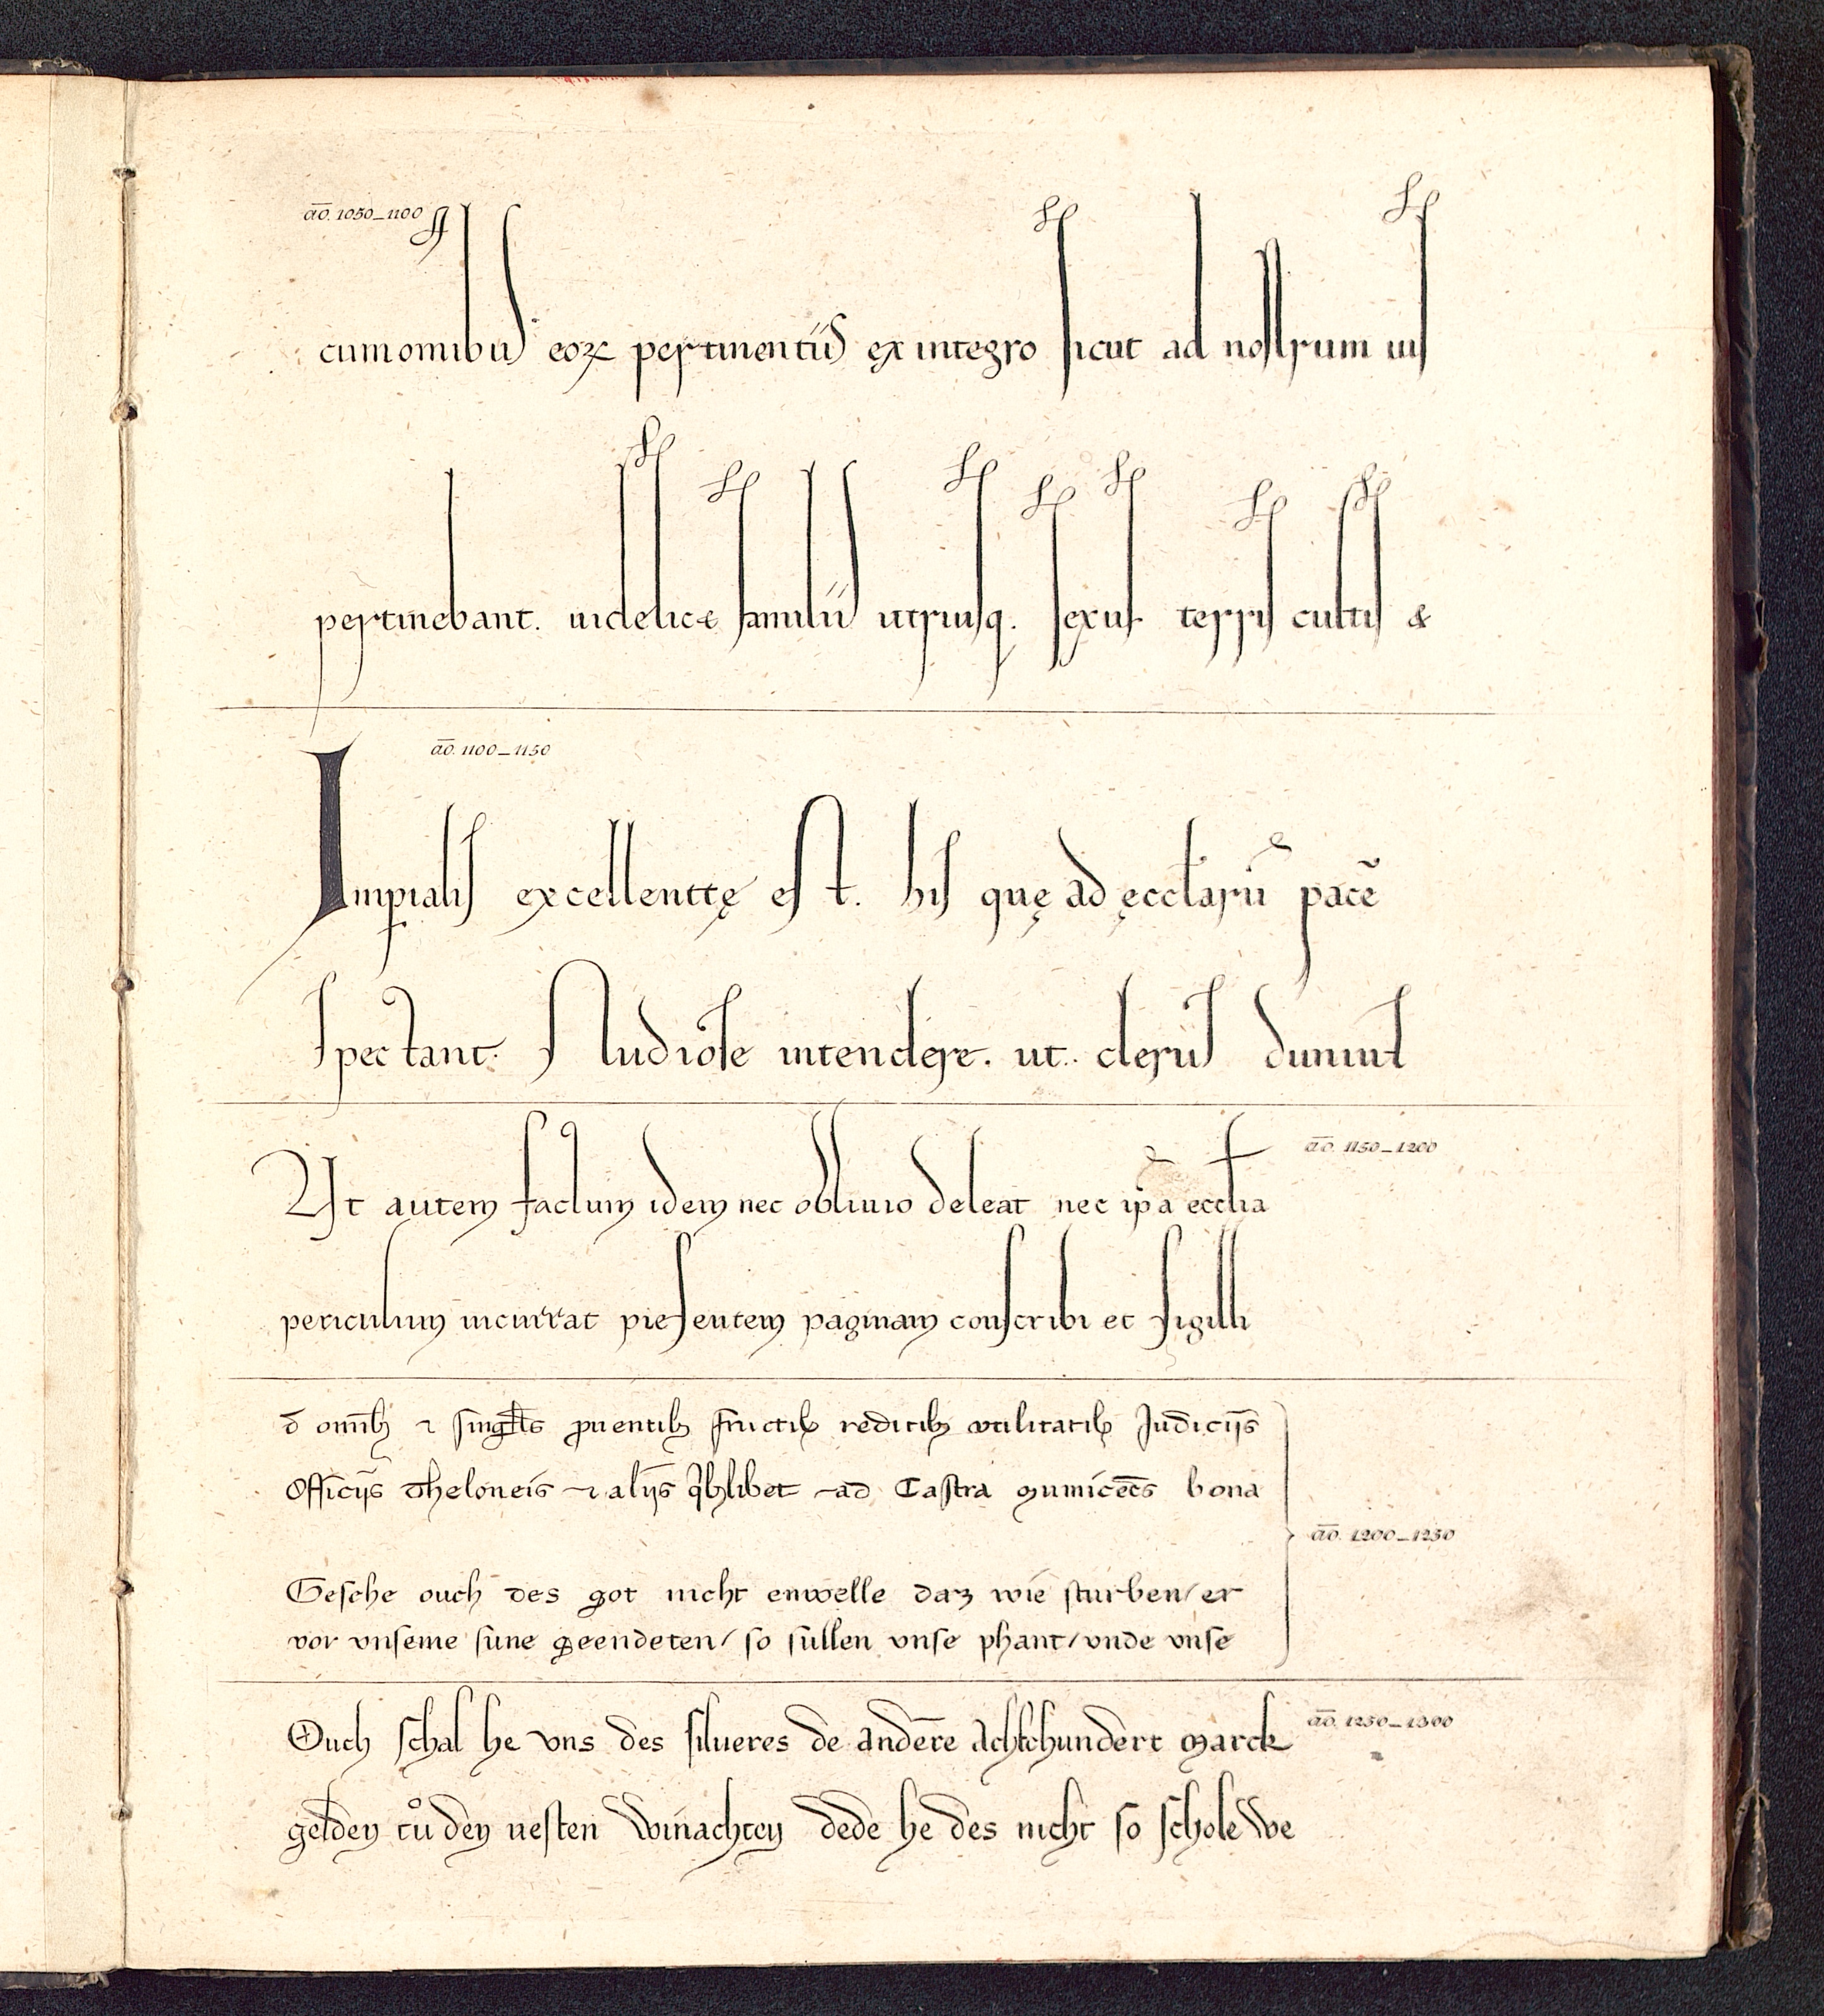 a͞o. 1050–1100
cum omnibus eoꝝ pertinentiis ex integro sicut ad nostrum ius
pertinebant. uidelicet familiis utriusq. sexus terris cultis &
a͞o. 1100–1150
Imꝑialis excellentię est. his quę ad ęccl̄arū pacē
spectant. studiose intendere. ut. clerus
a͞o. 1150–1200
Ut autem factum idem nec obliuio deleat nec ip̄a eccl̄ia
periculum incurrat presentem paginam conscribi et sigilli
omībꝫ ⁊ singl̄is ꝓuentibꝫ fructibꝫ redditibꝫ vtilitatibꝫ Judiciis
Officijs Theloneis ⁊ alijs qͥbꝫlibet ad Castra bona
a͞o. 1200–1250
Gesche ouch des got nicht enwelle daz wie sturben/er
vor vnseme sune geendeten/ so sullen vnse phant/vnde vnse
Ouch schal he vns des silueres de andere Achtehundert marck
a͞o. 1250–1300
gelden tů den nesten Winachten dede he des nicht so schole we